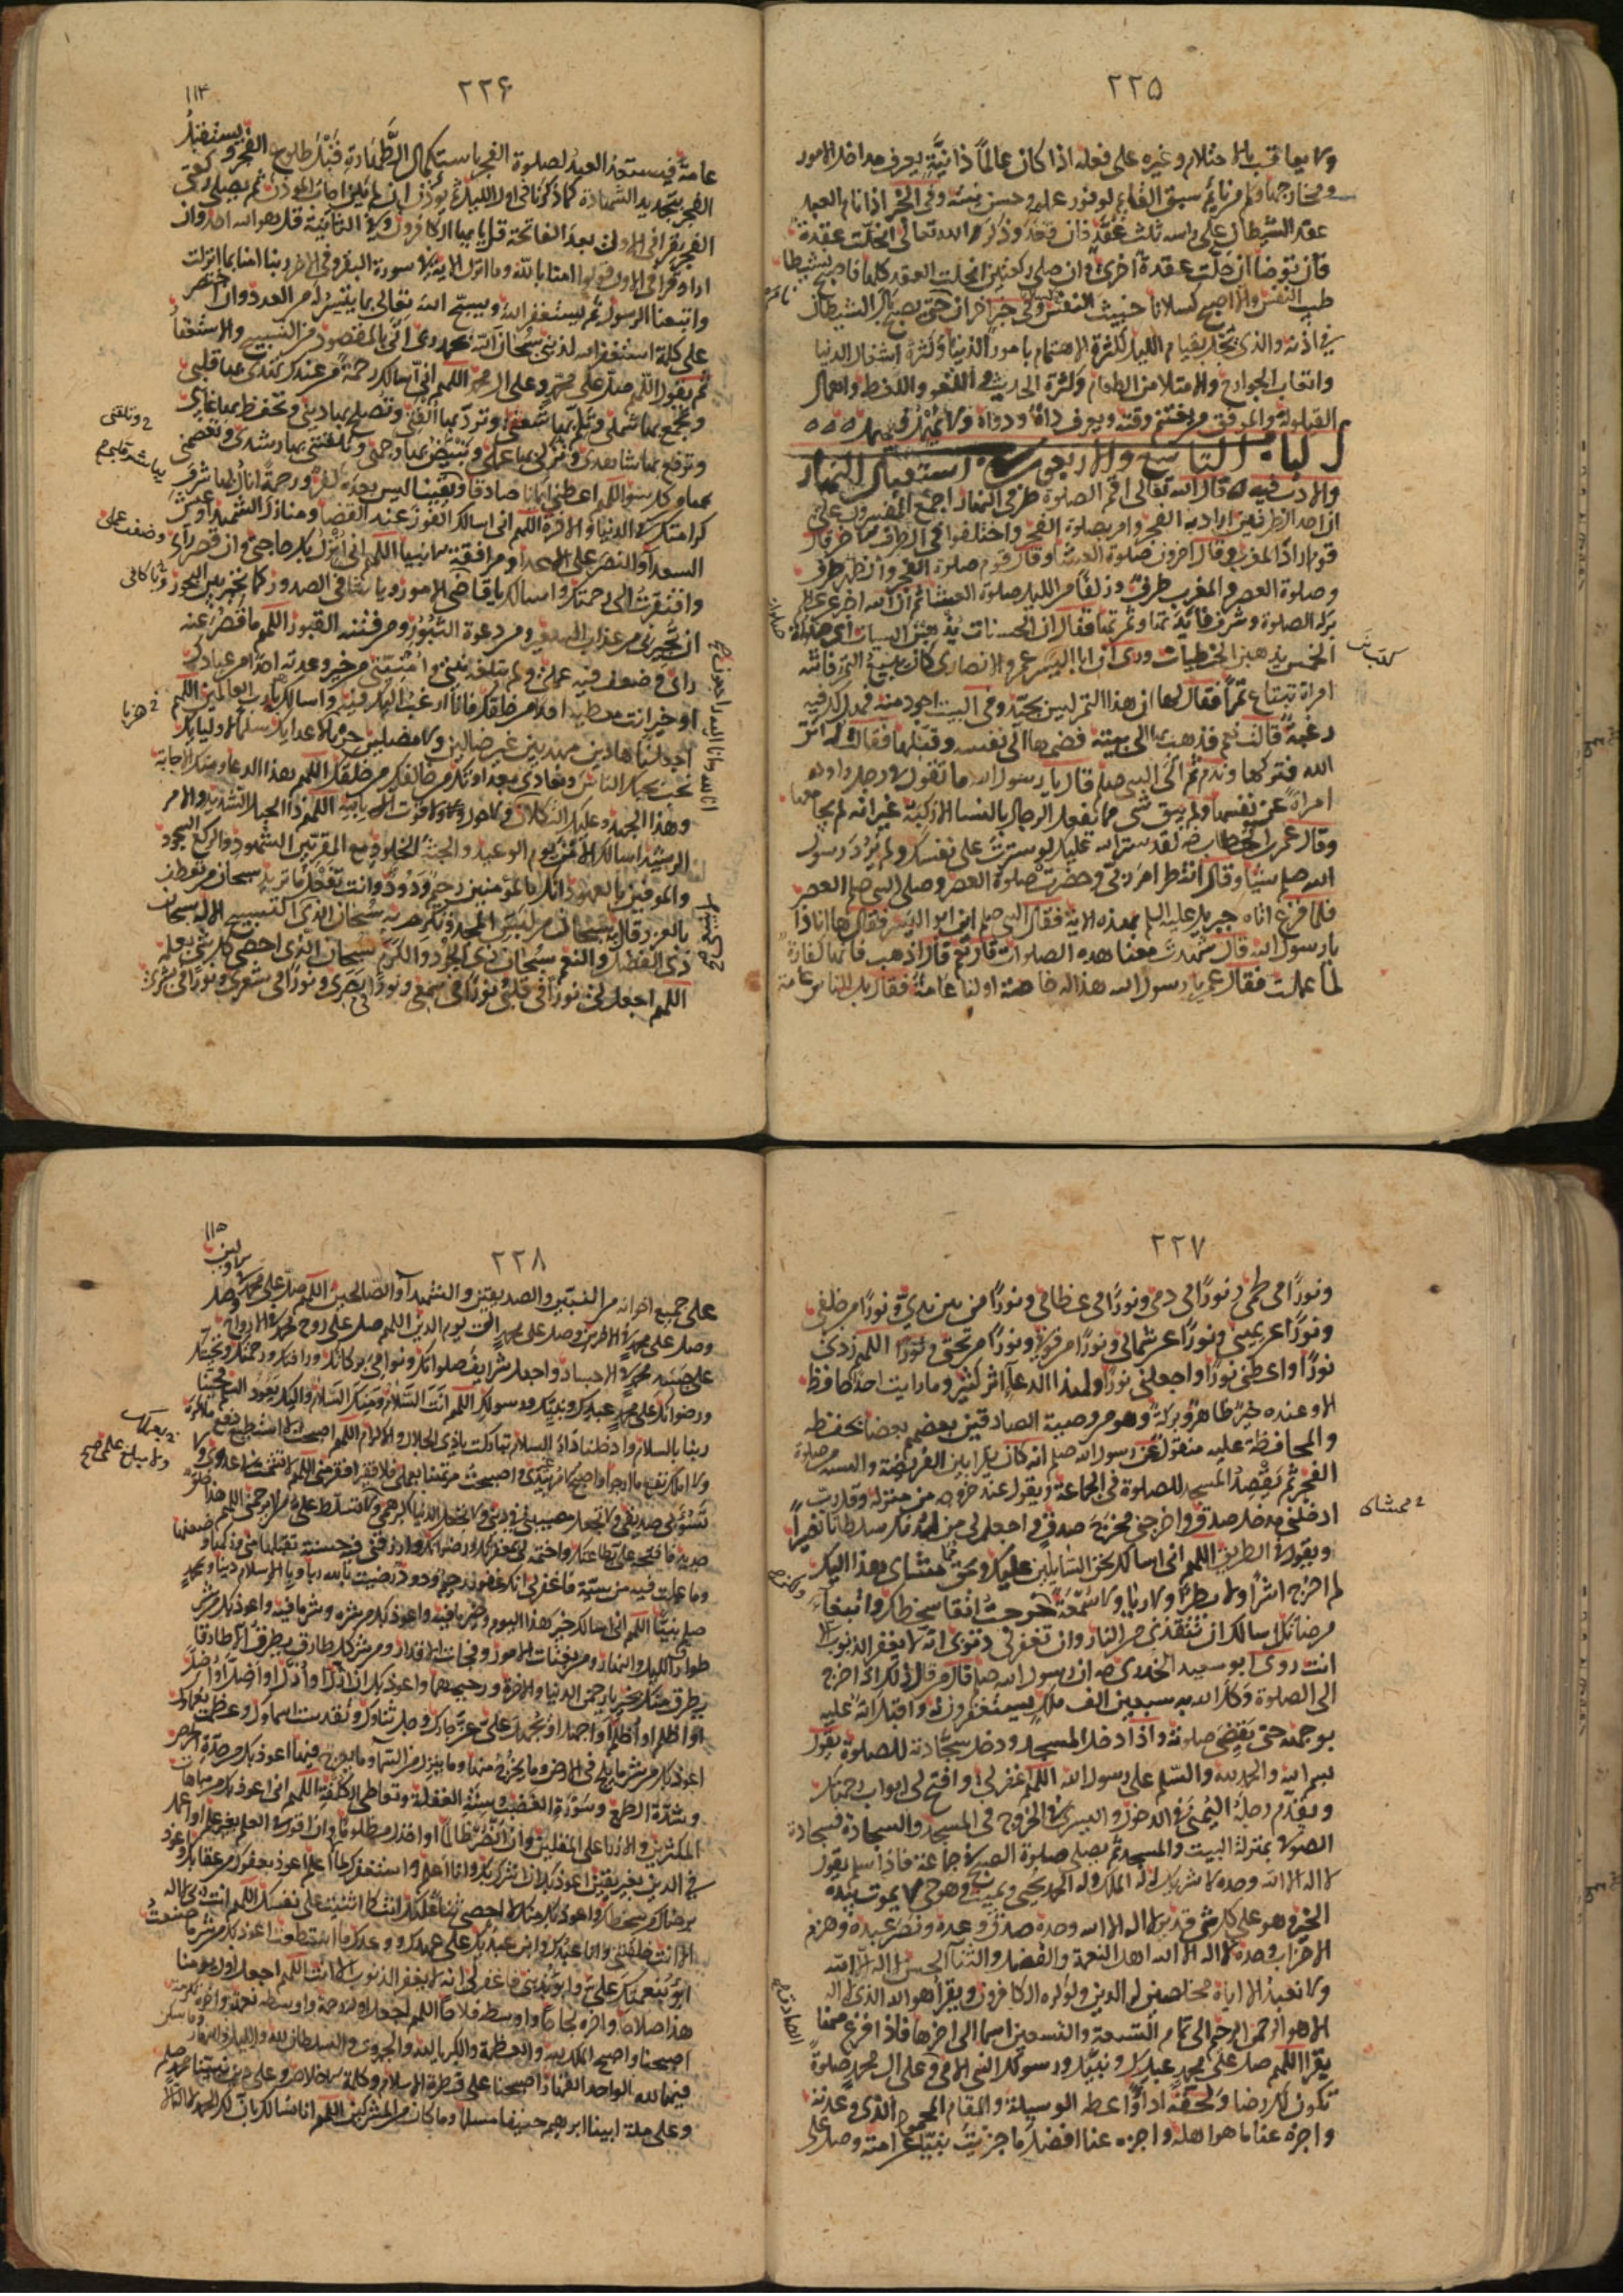 ٢٢٥
ولا يعاقب بالاحتلام وغيره على فعله اذا كان عالما ذا نية يعرف مداخل الامور
ومخارجها وكم من نايم سبق القايم لوفور علمه وحسن نيته وفى الخبر اذا نام العبد
عقد الشيطان على راسه ثلث عقد فان قعد وذكر الله تعالى انحلت عقدة
فان توضا انحلت عقدة اخرى وان صلى ركعتين انحلت العقد كلها فاصبح نشيطا
طيب النفس والا اصبح كسلانا خبيث النفس وفى خبر اخر ان من نام حتى يصبح بال الشيطان
فى اذنه والذى يخل بقيام الليل كثرة الاهتمام بامور الدنيا وكثرة اشغال الدنيا
واتعاب الجوارح والامتلا من الطعام وكثرة الحديث واللغو واللغط واهمال
القيلولة والموفق من يغتنم وقته ويعرف داه ودواه ولا يهمل فيهمل
الباب التاسع والاربعون فى استقبال النهار
والادب فيه قال الله تعالى اقم الصلوة طرفى النهار اجمع المفسرون على
ان احد الطرفين اراد به الفجر وامر بصلوة الفجر واختلفوا فى الطرف الاخر قال
قوم اراد المغرب وقال اخرون صلوة العشا وقال قوم صلوة الفجر والظهر طرف
وصلوة العصر والمغرب طرف وزلفا من الليل صلوة العشا ثم ان الله اخبر عن عظيم
بركة الصلوة وشرف فايدتها وثمرتها فقال ان الحسنات يذهبن السيات اى صلوات
الخمس يذهبن الخطيات وروى ان ابا اليسر عمرو الانصارى كان يبيع التمر فاتته
امراة تبتاع تمرا فقال لها ان هذا التمر ليس بجيد وفى البيت اجود منه فهل لك فيه
رغبة قالت نعم فذهب بها الى بيته فضمها الى نفسه وقبلها فقالت له اتق
الله فتركها وندم ثم اتى النبى صلعم قال يا رسول الله ما تقول فى رجل راود
امراة عن نفسها ولم يبق شى مما يفعل الرجال بالنسا الا ركبه غير انه لم يجامعها
وقال عمر بن الخطاب رضه لقد ستر الله عليك لو سترت على نفسك ولم يرد رسول
الله صلعم شيا وقال انتظر امر ربى وحضرت صلوة العصر وصلى النبى صلعم العصر
فلما فرغ اتاه جبريل عليه السلم بهذه الاية فقال النبى صلعم اين ابو اليسر فقال ها انا ذا
يا رسول الله قال شهدت معنا هذه الصلوات قال نعم قال اذهب فانها كفارة
لما عملت فقال عمر يا رسول الله هذا له خاصة او لنا عامة فقال بل للناس عامة
٢٢۶
١١۴
عامة فيستعد العبد لصلوة الفجر باستكمال الطهارة قبل طلوع الفجر ويستقبل
الفجر بتجديد الشهادة كما ذكرنا فى اول الليل ثم يوذن ان لم يكن اجاب الموذن ثم يصلى ركعتى
الفجر يقرا فى الاولى بعد الفاتحة قل يا ايها الكافرون وفى الثانية قل هو الله احد وان
اراد قرا فى الاولى قولوا امنا بالله وما انزل الاية فى سورة البقرة وفى الاخرى ربنا امنا بما انزلت
واتبعنا الرسول ثم يستغفر الله ويسبح الله تعالى بما يتيسر له من العدد وان اقتصر
على كلمة استغفر الله لذنبى سبحان الله بحمد ربى اتى بالمقصود من التسبيح والاستغفار
ثم يقول اللهم صل على محمد وعلى ال محمد اللهم انى اسالك رحمة من عندك تهدى بها قلبى
وتجمع بها شملى وتلم بها شعثى وترد بها الفتى وتصلح بها دينى وتحفظ بها غايبى
وترفع بها شاهدى وتزكى بها عملى وتبيض بها وجهى وتلقنى بها رشدى وتعصمنى
بها من كل سوء اللهم اعطنى ايمانا صادقا ويقينا ليس بعده كفر ورحمة انال بها شرف
كرامتك فى الدنيا والاخرة اللهم انى اسالك الفوز عند القضا ومنازل الشهدا وعيش
السعدا والنصر على الاعدا ومرافقة الانبيا اللهم انى انزل بك حاجتى وان قصر رايى وضعف عملى
وافتقرت الى رحمتك واسالك يا قاضى الامور ويا شافى الصدور كما تجير بين البحور
ان تجيرنى من عذاب السعير ومن دعوة الثبور ومن فتنة القبور اللهم ما قصر عنه
رايى وضعف فيه عملى ولم تبلغه نيتى وامنيتى من خير وعدته احدا من عبادك
او خير انت معطيه احدا من خلقك فانا ارغب اليك فيه واسالك يا رب العالمين اللهم
اجعلنا هادين مهديين غير ضالين ولا مضلين حربا لاعدايك سلما لاوليايك
نحب بحبك الناس ونعادى بعداوتك من خالفك من خلقك اللهم هذا الدعا ومنك الاجابة
وهذا الجهد وعليك التكلان ولا حول ولا قوة الا بالله اللهم ذا الحبل الشديد والامر
الرشيد اسالك الامن يوم الوعيد والجنة يوم الخلود مع المقربين الشهود والركع السجود
والموفين بالعهود انك بالمومنين رحيم ودود وانت تفعل ما تريد سبحان من تعطف
بالعز وقال به سبحان من لبس المجد وتكرم به سبحان الذى لا ينبغى التسبيح الا له سبحان
ذى الفضل والنعم سبحان ذى الجود والكرم سبحان الذى احصى كل شى بعلمه
اللهم اجعل لى نورا فى قلبى ونورا فى سمعى ونورا فى بصرى ونورا فى شعرى ونورا فى بشرى
٢٢٧
ونورا فى لحمى ونورا فى دمى ونورا فى عظامى ونورا من بين يدى ونورا من خلفى
ونورا عن يمينى ونورا عن شمالى ونورا من فوقى ونورا من تحتى اللهم زدنى
نورا واعطنى نورا واجعلنى نورا ولهذا الدعا اثر كثير وما رايت احدا حافظ
الا وعنده خير ظاهر وبركة وهو من وصية الصادقين بعضهم بعضا بحفظه
والمحافظة عليه منقول عن رسول الله صلعم انه كان يقرا بين الفريضة والسنة من صلوة
الفجر ثم يقصد المسجد للصلوة فى الجماعة ويقول عند خروجه من منزله وقل رب
ادخلنى مدخل صدق واخرجنى مخرج صدق واجعل لى من لدنك سلطانا نصيرا
ويقول فى الطريق اللهم انى اسالك بحق السايلين عليك وبحق ممشاى هذا اليك
لم اخرج اشرا ولا بطرا ولا ريا ولا سمعة خرجت اتقا سخطك وابتغا
مرضاتك اسالك ان تنقذنى من النار وان تغفر لى ذنوبى انه لا يغفر الذنوب الا
انت روى ابو سعيد الخدرى رضه ان رسول الله صلعم قال من قال ذلك اذا خرج
الى الصلوة وكل الله به سبعين الف ملك يستغفرون له واقبل الله عليه
بوجهه حتى يقضى صلوته واذا دخل المسجد او دخل سجادته للصلوة يقول
بسم الله والحمد لله والسلم على رسول الله اللهم اغفر لى وافتح لى ابواب رحمتك
ويقدم رجله اليمنى فى الدخول واليسرى فى الخروج من المسجد والسجادة فسجادة
الصوفى بمنزلة البيت والمسجد ثم يصلى صلوة الصبح فى جماعة فاذا سلم يقول
لا اله الا الله وحده لا شريك له له الملك وله الحمد يحيى ويميت وهو حى لا يموت بيده
الخير وهو على كل شى قدير لا اله الا الله وحده صدق وعده ونصر عبده وهزم
الاحزاب وحده لا اله الا الله اهل النعمة والفضل والثنا الحسن لا اله الا الله
ولا نعبد الا اياه مخلصين له الدين ولو كره الكافرون ويقرا هو الله الذى لا اله
الا هو الرحمن الرحيم الى تمام التسعة والتسعين اسما الى اخرها فاذا فرغ منها
يقرا اللهم صل على محمد عبدك ونبيك ورسولك النبى الامى وعلى ال محمد صلوة
تكون لك رضا ولحقه ادا واعطه الوسيلة والمقام المحمود الذى وعدته
واجزه عنا ما هو اهله واجزه عنا افضل ما جزيت نبيا عن امته وصل على
٢٢٨
١١٥
على جميع اخوانه من النبيين والصديقين والشهدا والصالحين اللهم صل على محمد فى الاولين
وصل على محمد فى الاخرين وصل على محمد الى يوم الدين اللهم صل على روح محمد فى الارواح وصل
على جسد محمد فى الاجساد واجعل شرايف صلواتك ونوامى بركاتك ورافتك ورحمتك وتحيتك
ورضوانك على محمد عبدك ونبيك ورسولك اللهم انت السلام ومنك السلام واليك يعود السلام فحينا
ربنا بالسلام وادخلنا دار السلام تباركت يا ذا الجلال والاكرام اللهم اصبحت لا استطيع دفع ما اكره
ولا املك نفع ما ارجو واصبح الامر بيدى غيرى واصبحت مرتهنا بعملى فلا فقير افقر منى اللهم لا تشمت بى عدوى ولا
تسؤ بى صديقى ولا تجعل مصيبتى فى دينى ولا تجعل الدنيا اكبر همى ولا تسلط على من لا يرحمنى اللهم هذا خلق
جديد فافتحه على بطاعتك واختمه لى بمغفرتك ورضوانك وارزقنى فيه حسنة تقبلها منى وزكها وضعفها
وما عملت فيه من سيئة فاغفر لى انك غفور رحيم ودود رضيت بالله ربا وبالاسلام دينا وبمحمد
صلعم نبيا اللهم انى اسالك خير هذا اليوم وخير ما فيه واعوذ بك من شره وشر ما فيه واعوذ بك من شر
طوارق الليل والنهار ومن بغتات الامور وفجات الاقدار ومن شر كل طارق يطرق الا طارقا
يطرق منك بخير يا رحمن الدنيا والاخرة ورحيمهما واعوذ بك ان ازل او ازل او اضل او اضل
او اظلم او اظلم او اجهل او يجهل على عز جارك وجل ثناوك وتقدست اسماوك وعظمت نعماوك
اعوذ بك من شر ما يلج فى الارض وما يخرج منها وما ينزل من السما وما يعرج فيها اعوذ بك من حدة الحرص
وشدة الطمع وسورة الغضب وسنة الغفلة وتعاطى الكلفة اللهم انى اعوذ بك من مباهات
المكثرين والازرا على المقلين وان انصر ظالما او اخذل مظلوما وان اقول فى العلم بغير علم او اعمل
فى الدين بغير يقين اعوذ بك ان اشرك بك وانا اعلم واستغفرك لما لا اعلم اعوذ بعفوك من عقابك واعوذ
برضاك من سخطك واعوذ بك منك لا احصى ثنا عليك انت كما اثنيت على نفسك اللهم انت ربى لا اله
الا انت خلقتنى وانا عبدك وابن عبديك على عهدك ووعدك ما استطعت اعوذ بك من شر ما صنعت
ابوء بنعمتك على وابوء بذنبى فاغفر لى انه لا يغفر الذنوب الا انت اللهم اجعل اول يومنا
هذا صلاحا واخره نجاحا واوسطه فلاحا اللهم اجعل اوله رحمة واوسطه نعمة واخره تكرمة
اصبحنا واصبح الملك لله والعظمة والكبريا لله والجبروت والسلطان لله والليل والنهار وما سكن
فيهما لله الواحد القهار اصبحنا على فطرة الاسلام وكلمة الاخلاص وعلى دين نبينا محمد صلعم
وعلى ملة ابينا ابرهيم حنيفا مسلما وما كان من المشركين اللهم انا نسالك بان لك الحمد لا اله الا